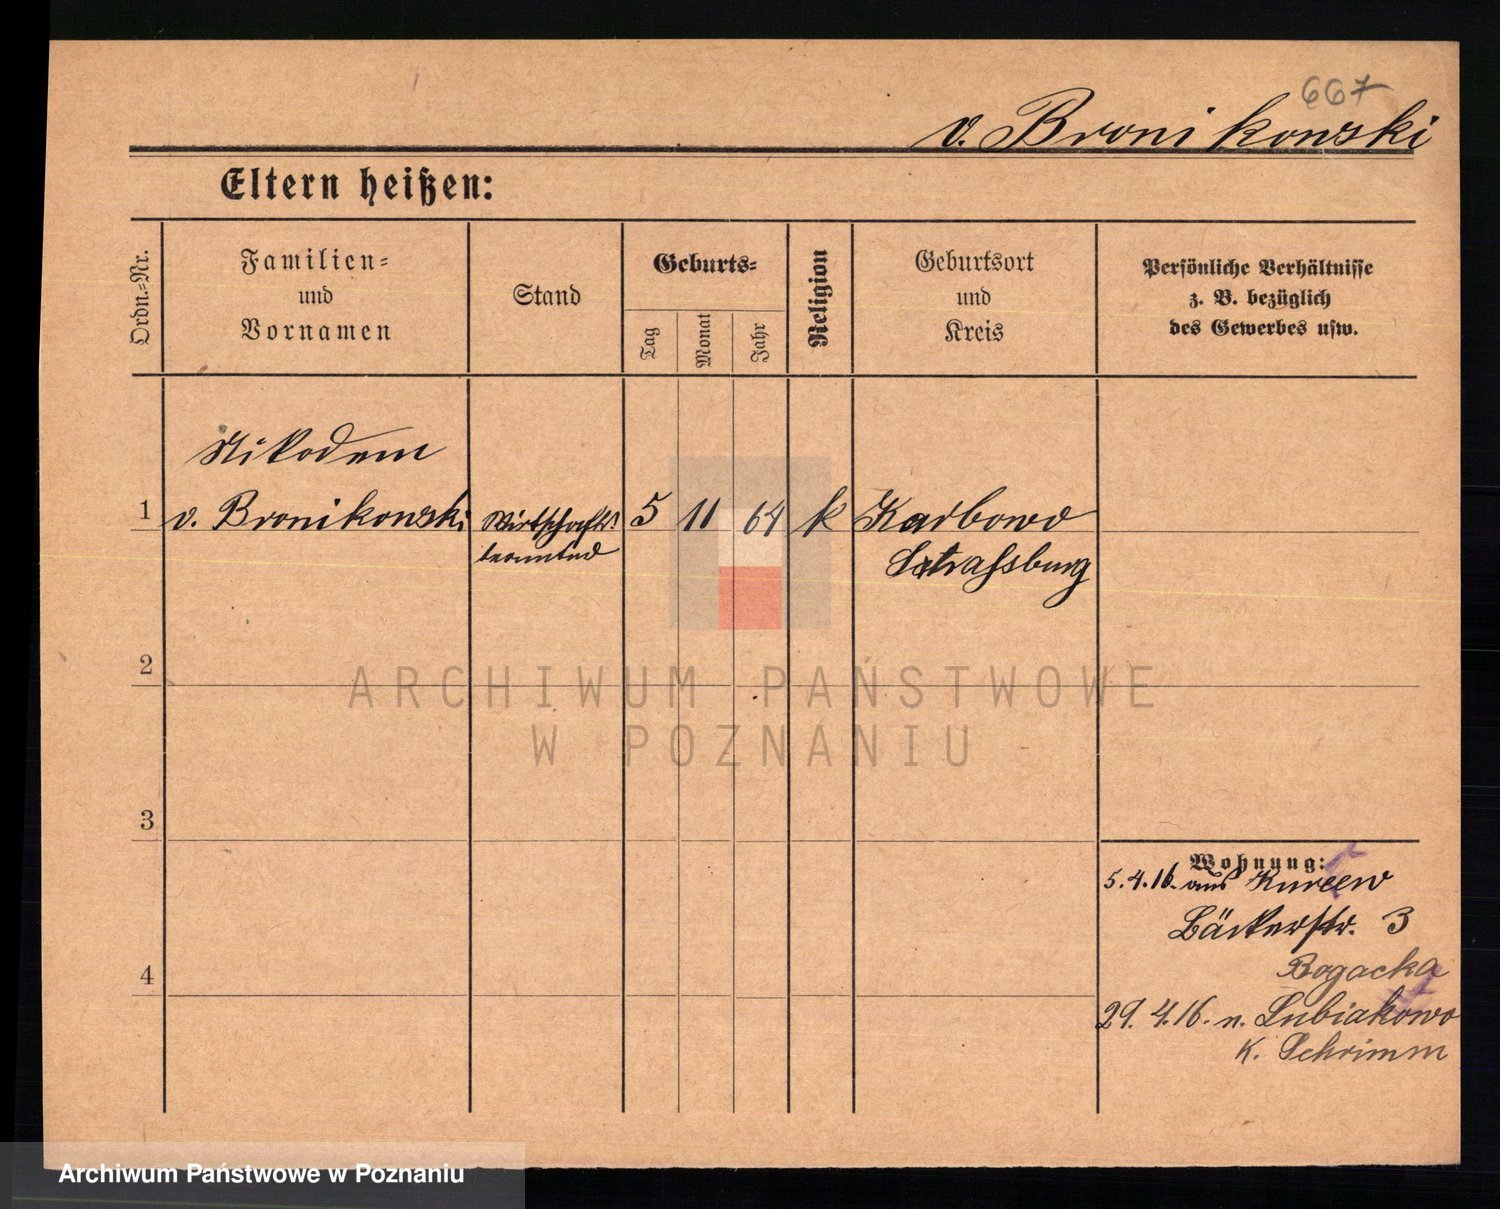 667
v. Bronikowski
Eltern heißen:
Ordn.-Nr.
Familien-
und
Vornamen
Stand
Geburts-
Tag
Monat
Jahr
Religion
Geburtsort
und
Kreis
Persönliche Verhältnisse
z. B. bezüglich
des Gewerbes usw.
Nikodem
1 v. Bronikowski Wirtschafts- 5 11 64 k Karbowo
beamter Strassburg
2
ARCHIWUM PAŃSTWOWE
W POZNANIU
3
Wohnung:
5.4.16. aus Kurcew
Bäckerstr. 3
Bogacka
4
29. 4.16. n. Lubiakowo
K. Schrimm
Archiwum Państwowe w Poznaniu